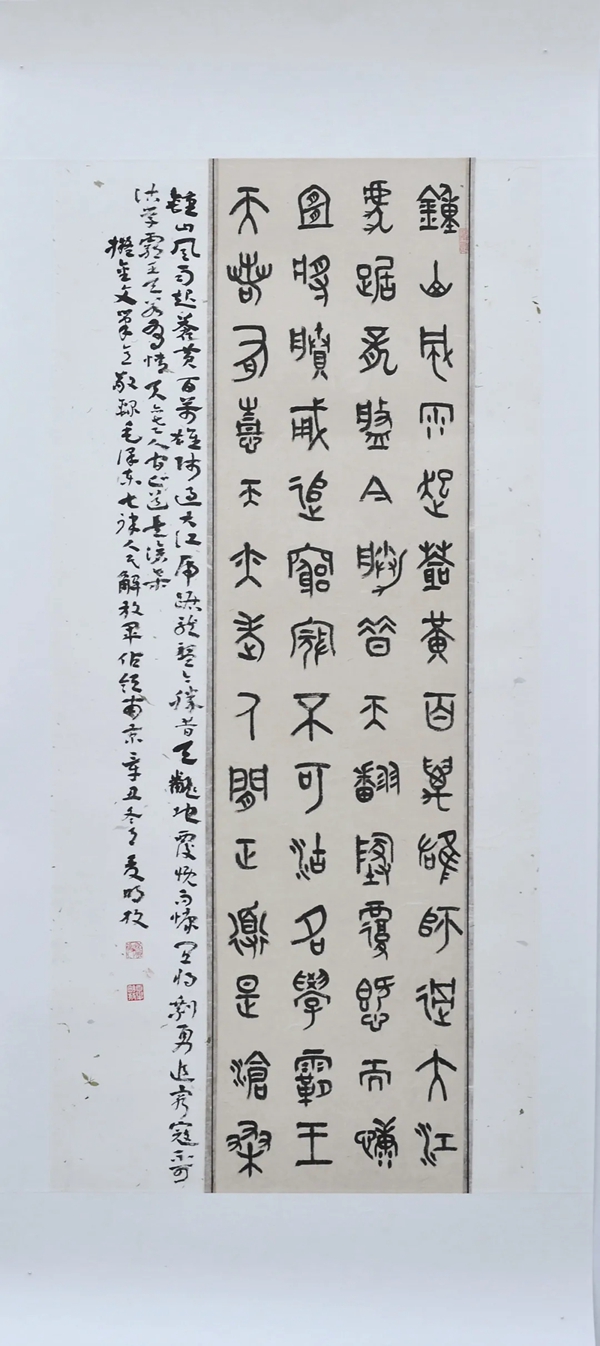 鐘山風雨起蒼黃百萬雄師過大江
虎踞龍盤今勝昔天翻地覆慨而慷
宜將剩勇追窮寇不可沽名學霸王
天若有情天亦老人間正道是滄桑
鍾山風雨起蒼黃百萬雄師過大江虎踞龍盤今勝昔天翻地覆慨而慷宜將剩勇追窮寇不可
沽學霸王天若有情天亦老人間正道是滄桑
擬金文筆意敬錄毛澤東七律人民解放軍佔領南京辛丑冬月夏明